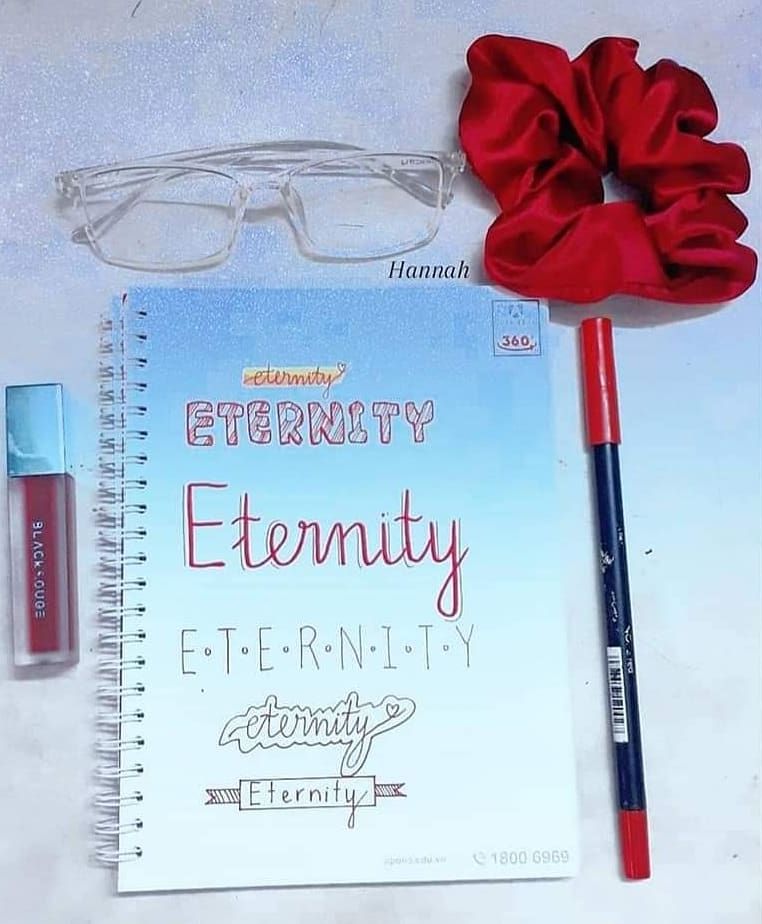 Hannah
360
eternity
ETERNITY
Eternity
E·T·E·R·N·I·T·Y
eternity
Eternity
1800 6969
BLACK ROUGE